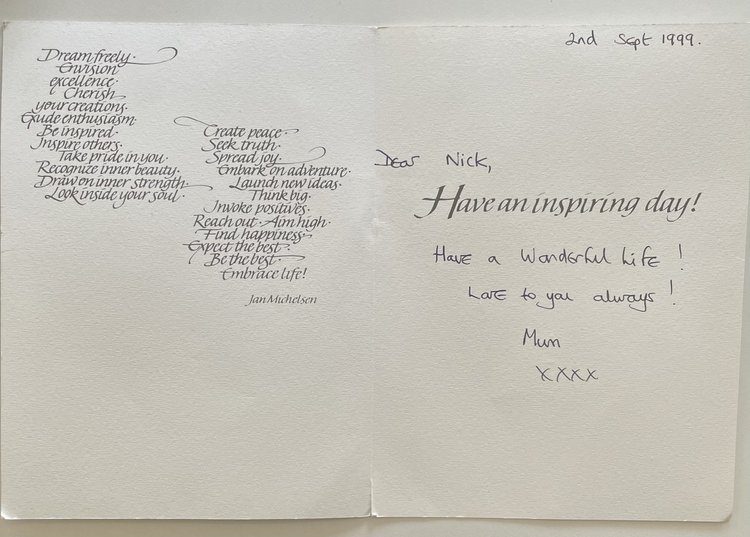 Dream freely·
Envision
excellence·
Cherish
your creations·
Exude enthusiasm·
Be inspired·
Inspire others·
Take pride in you·
Recognize inner beauty·
Draw on inner strength·
Look inside your soul·
Create peace·
Seek truth·
Spread joy·
Embark on adventure·
Launch new ideas·
Think big·
Invoke positives·
Reach out· Aim high·
Find happiness·
Expect the best·
Be the best·
Embrace life!
Jan Michelsen
2nd Sept 1999.
Dear Nick,
Have an inspiring day!
Have a Wonderful Life!
Love to you always!
Mum
xxxx